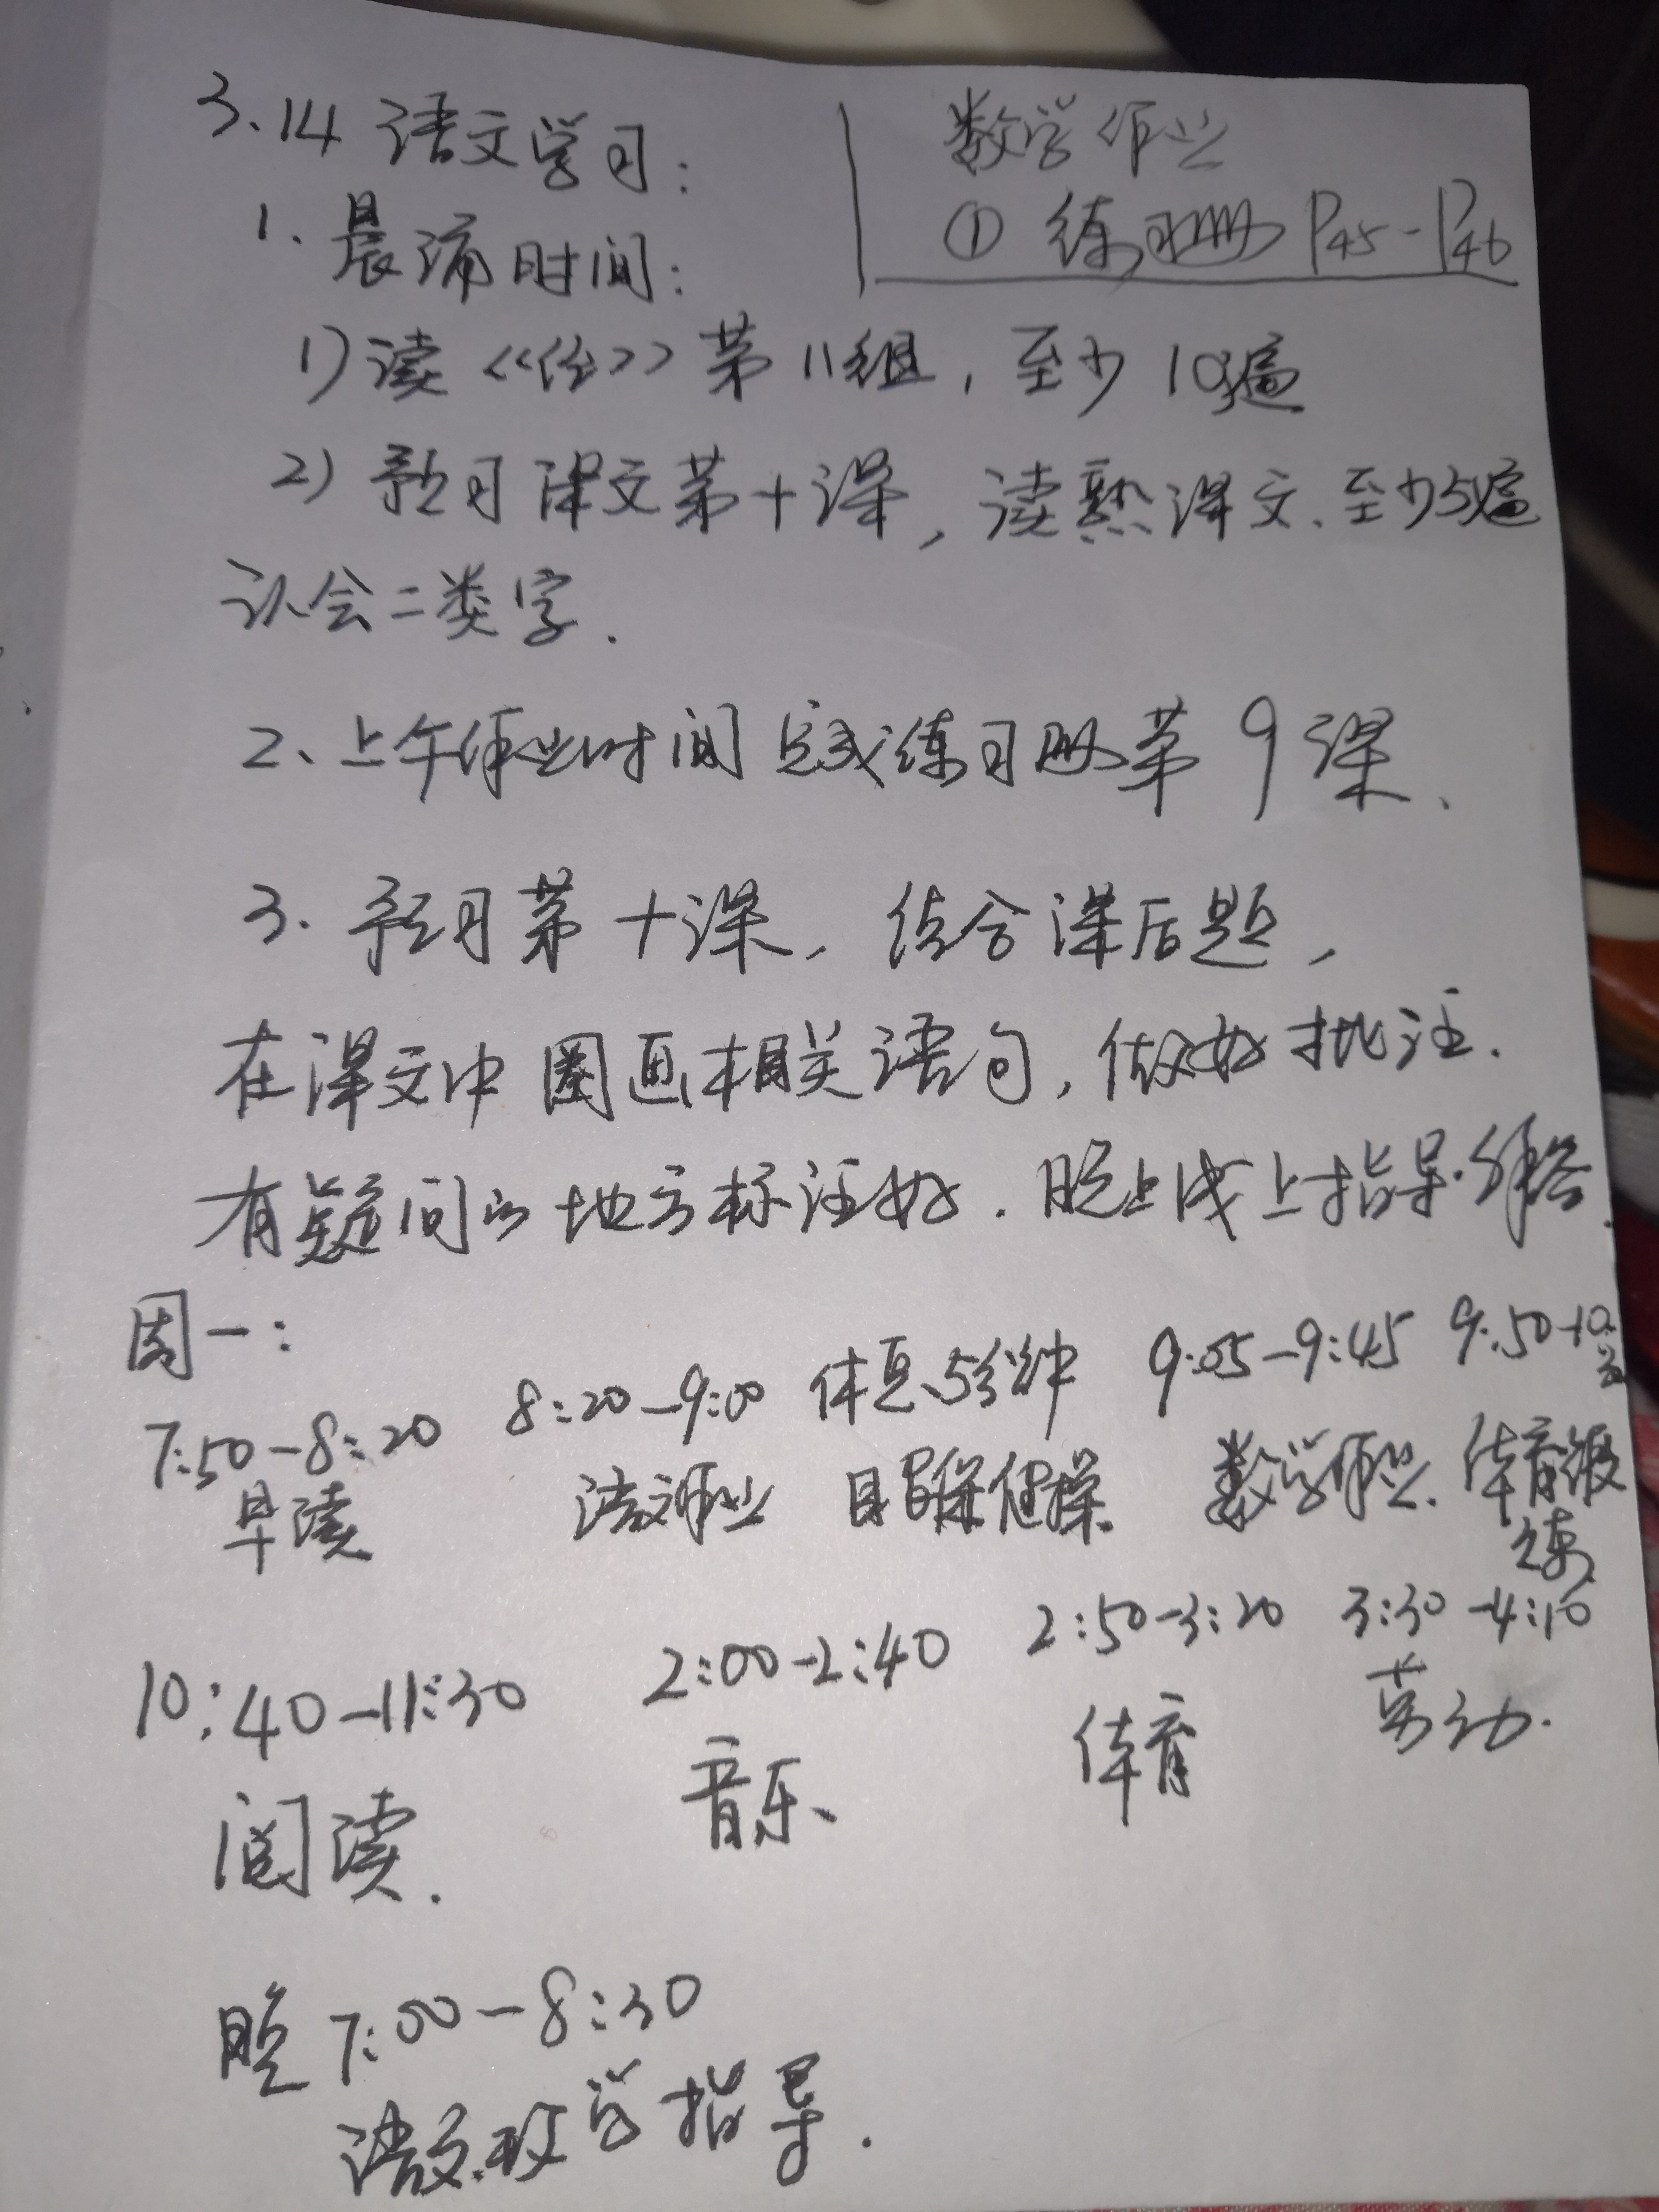 3.14 语文学习：
数学作业
① 练习册 P45-P46
1. 晨诵时间：
1) 读《》第11组，至少10遍
2) 预习课文第十课，读熟课文、至少5遍
认会二类字.
2、上午作业时间 完成练习册第9课、
3. 预习第十课，结合课后题，
在课文中圈画相关语句，做好批注.
有疑问的地方标注好. 晚上线上指导.解答.
周一：
7:50-8:20 8:20-9:00 休息5分钟 9:05-9:45 9:50-10:
早读 语文作业 眼保健操. 数学作业. 体育锻
炼
10:40-11:30 2:00-2:40 2:50-3:20 3:30-4:10
阅读. 音乐、 体育 劳动.
晚 7:00-8:30
语文.数学指导.